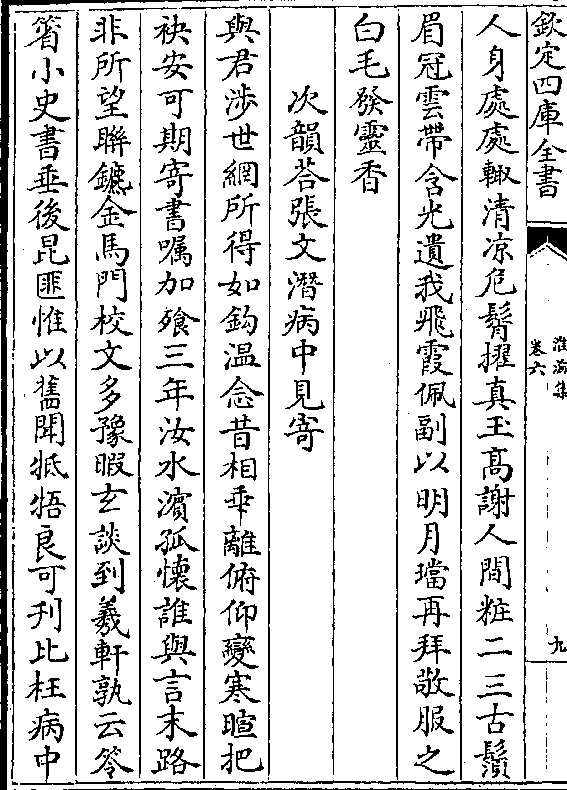 欽定四庫全書
淮海集
卷六
九
人身處處輙清凉危髾擢真玉高謝人間粧二三古鬚
眉冠雲帶含光遺我飛霞佩副以明月璫再拜敬服之
白毛發靈香
次韻荅張文潛病中見寄
與君渉世網所得如鈎温念昔相乖離俯仰變寒暄把
袂安可期寄書嘱加飱三年汝水濵孤懐誰與言末路
非所望聯鑣金馬門校文多豫暇玄談到羲軒孰云笭
箵小史書垂後昆匪惟以舊聞牴牾良可刋比枉病中